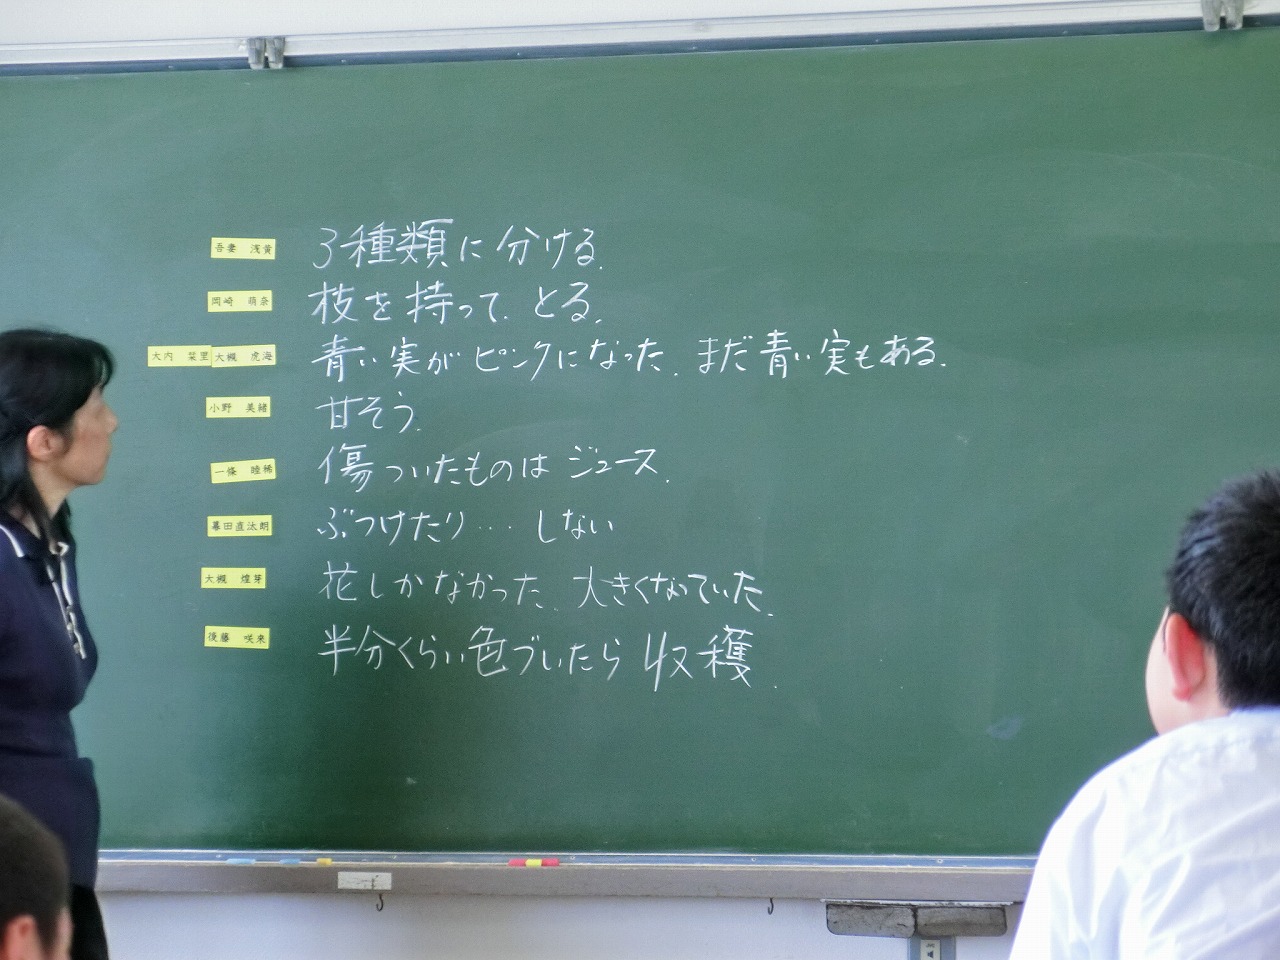 吾妻 浅黄 3種類に分ける.
岡崎 萌奈 枝を持って. とる.
大内 栞里 大槻 虎海 青い実がピンクになった. まだ青い実もある.
小野 美緒 甘そう.
一條 睦稀 傷ついたものは ジュース.
幕田直汰朗 ぶつけたり… しない
大槻 煌芽 花しかなかった. 大きくなっていた.
後藤 咲来 半分くらい色づいたら 収穫.